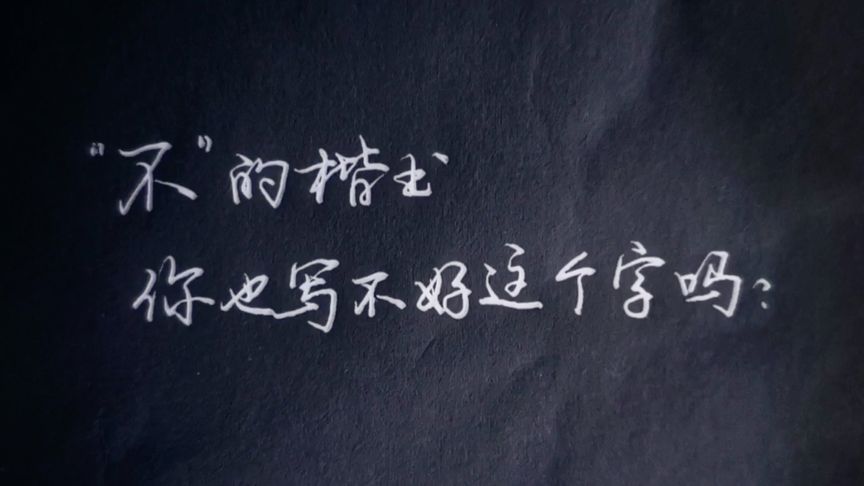 “不”的楷书
你也写不好这个字吗?